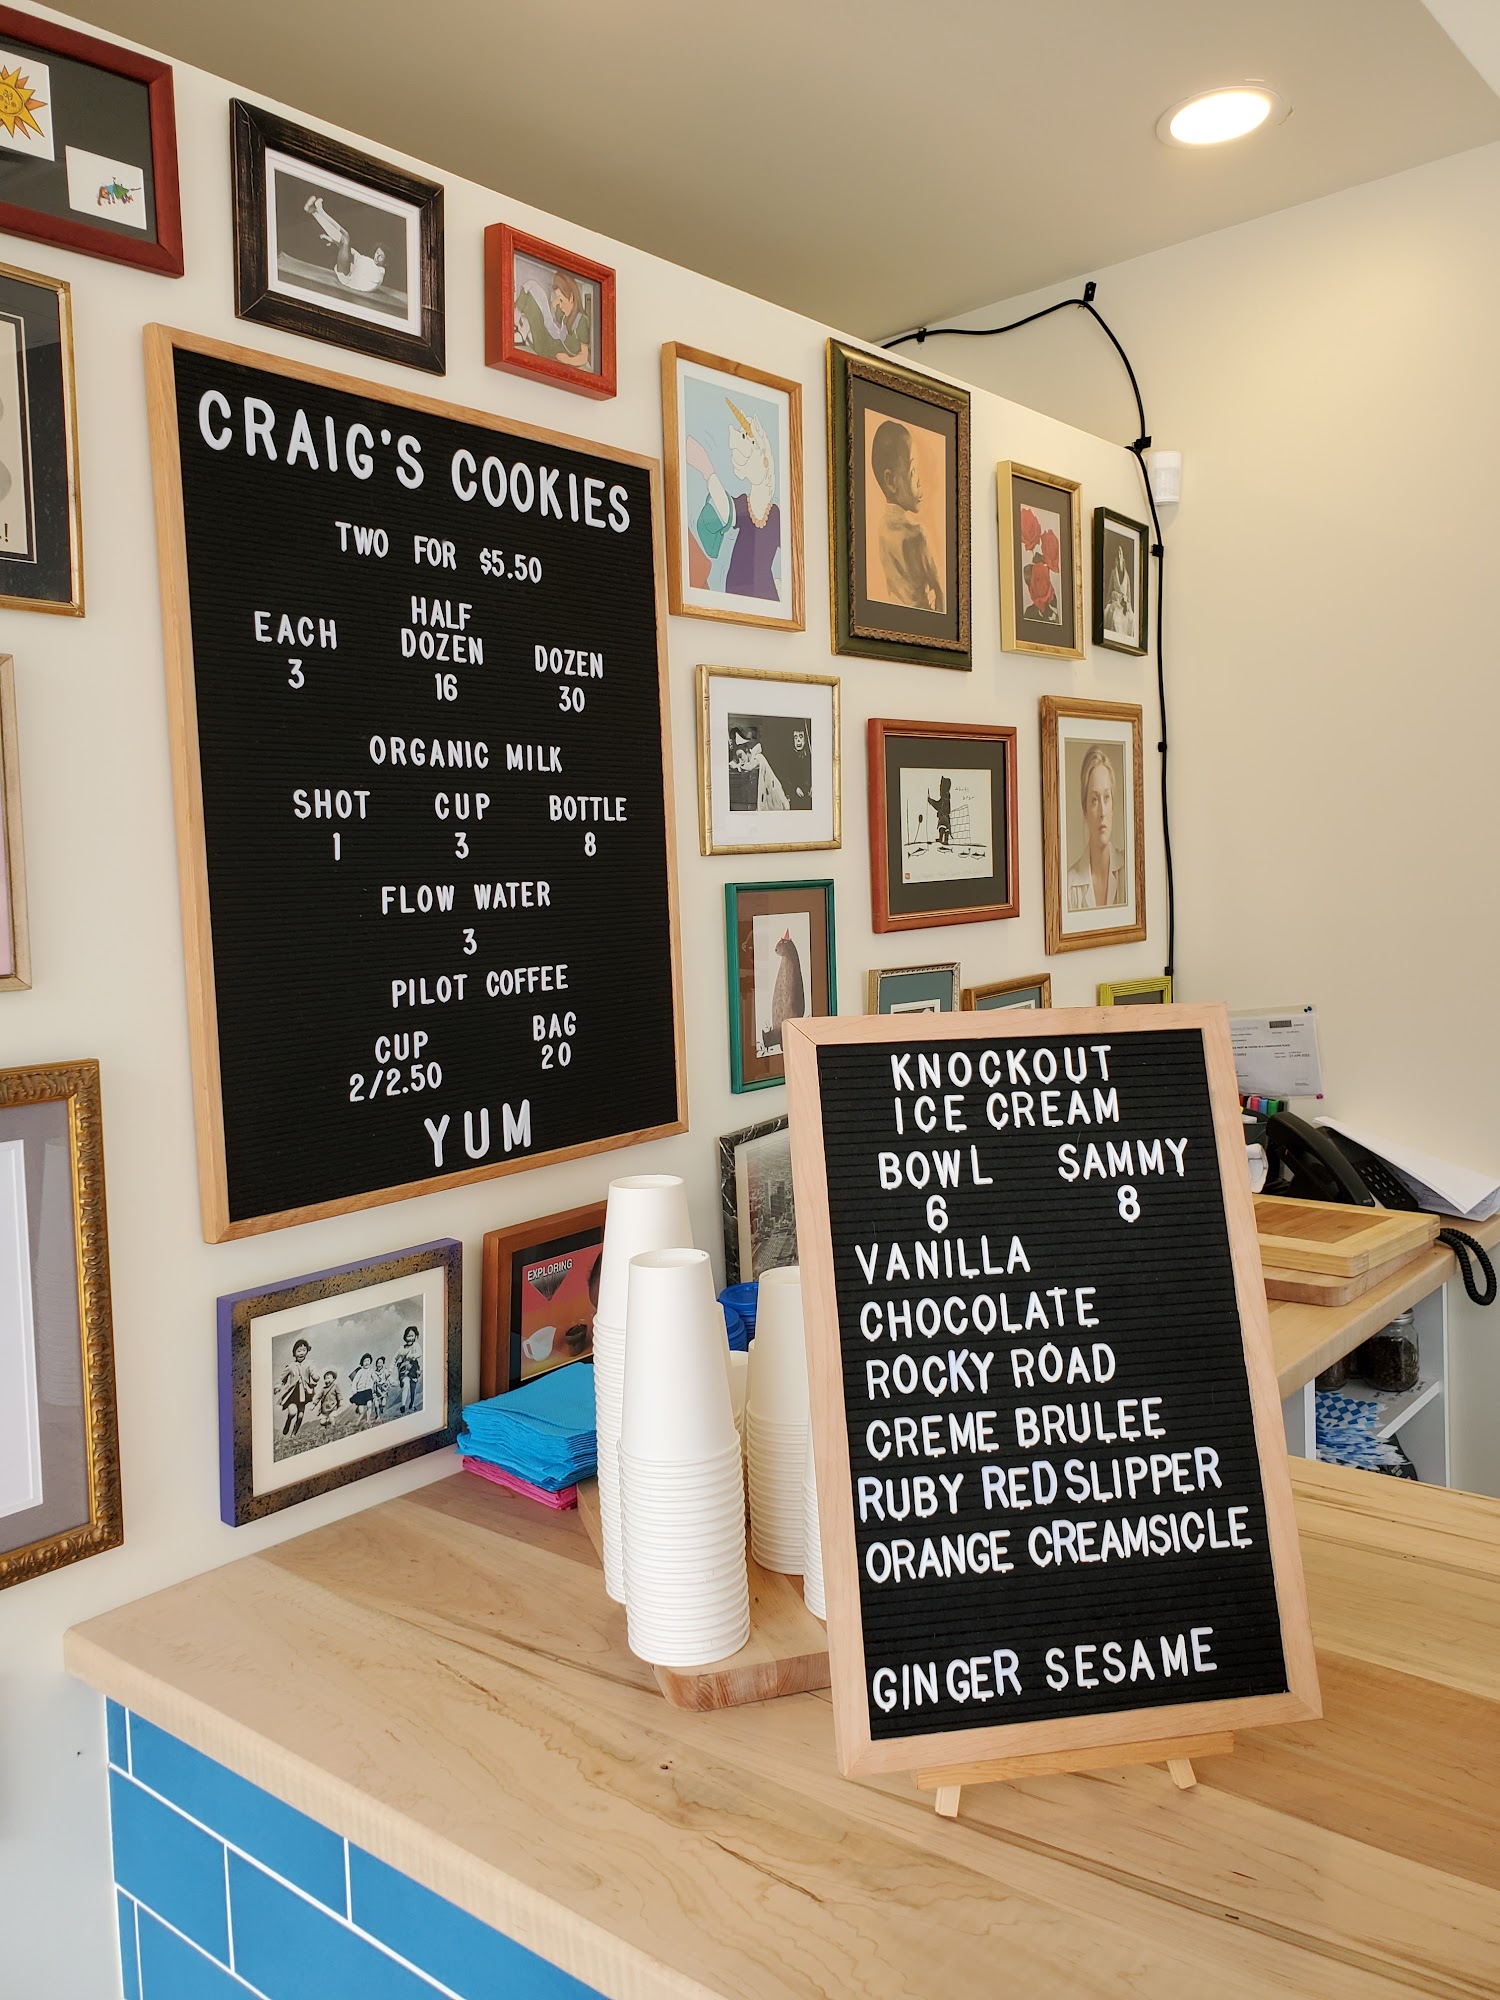 CRAIG'S COOKIES
TWO FOR $5.50
EACH HALF DOZEN DOZEN
3 16 30
ORGANIC MILK
SHOT CUP BOTTLE
1 3 8
FLOW WATER
3
PILOT COFFEE
CUP BAG
2/2.50 20
YUM
EXPLORING
KNOCKOUT
ICE CREAM
BOWL SAMMY
6 8
VANILLA
CHOCOLATE
ROCKY ROAD
CREME BRULEE
RUBY RED SLIPPER
ORANGE CREAMSICLE
GINGER SESAME